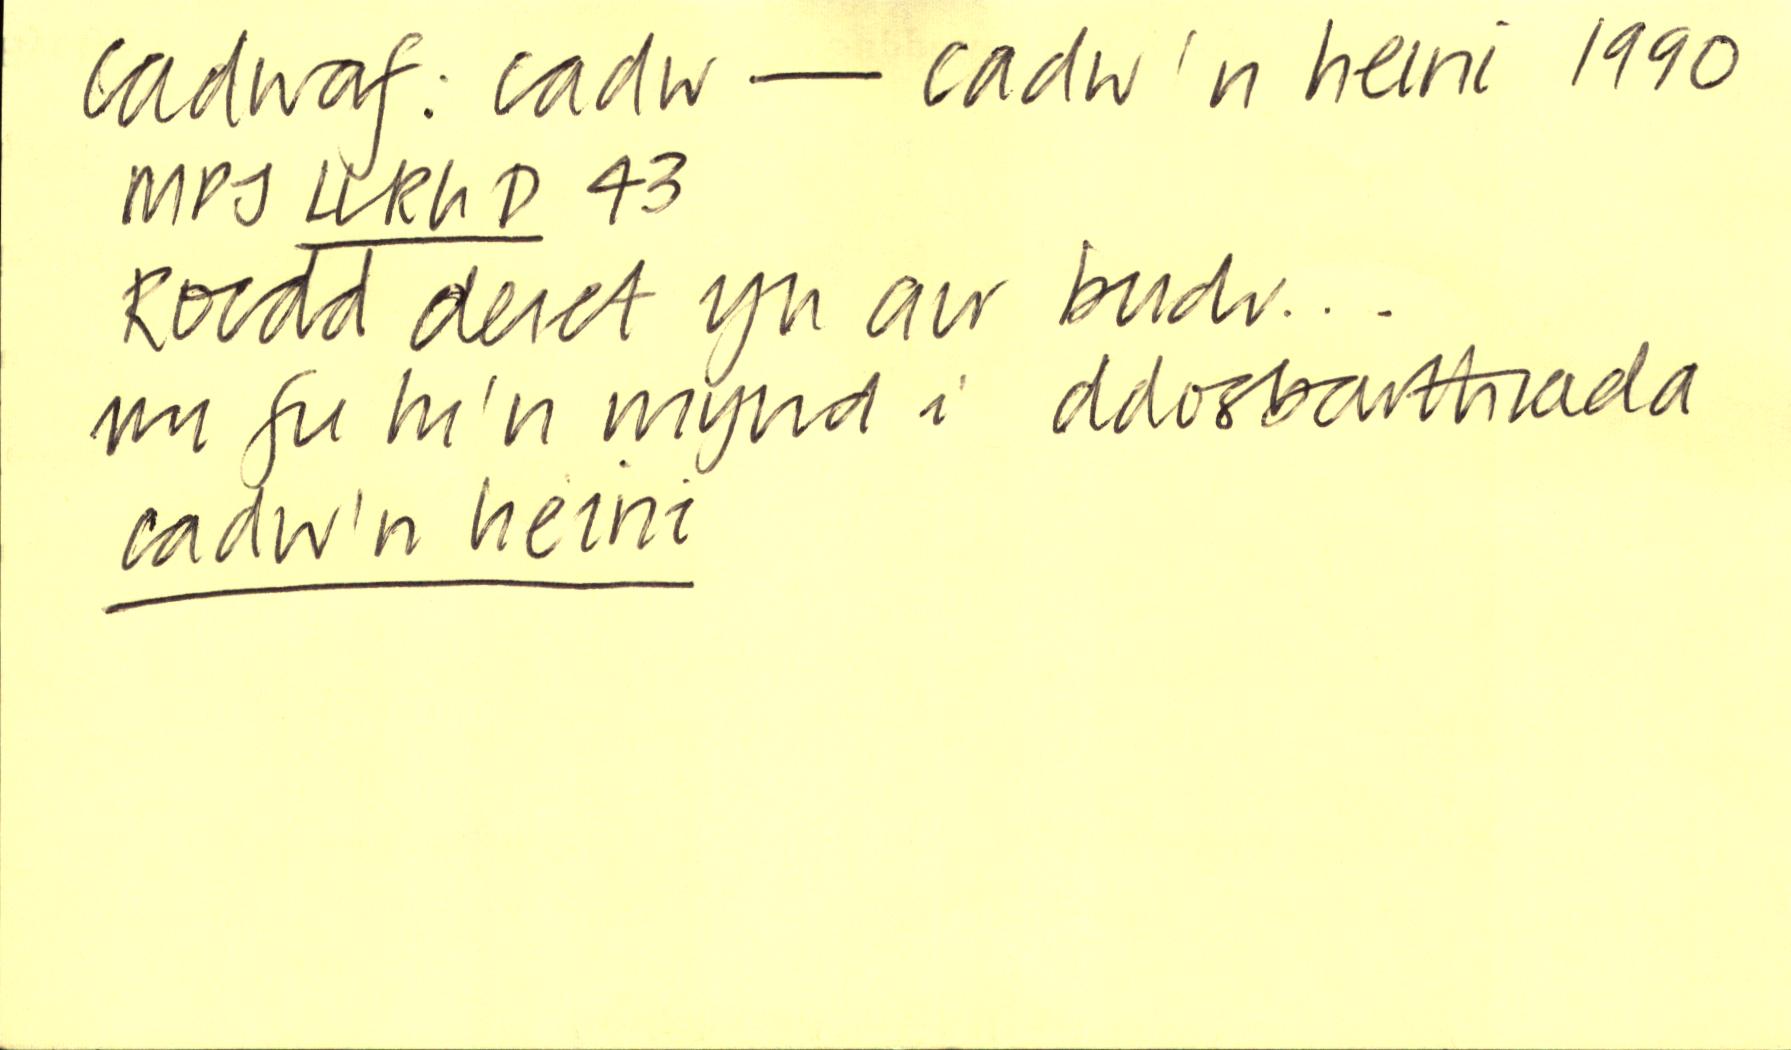 cadwaf: cadw — cadw'n heini 1990
MPJ LlRhD 43
Roedd deiet yn air budr...
mi fu hi'n mynd i ddosbarthiada
cadw'n heini